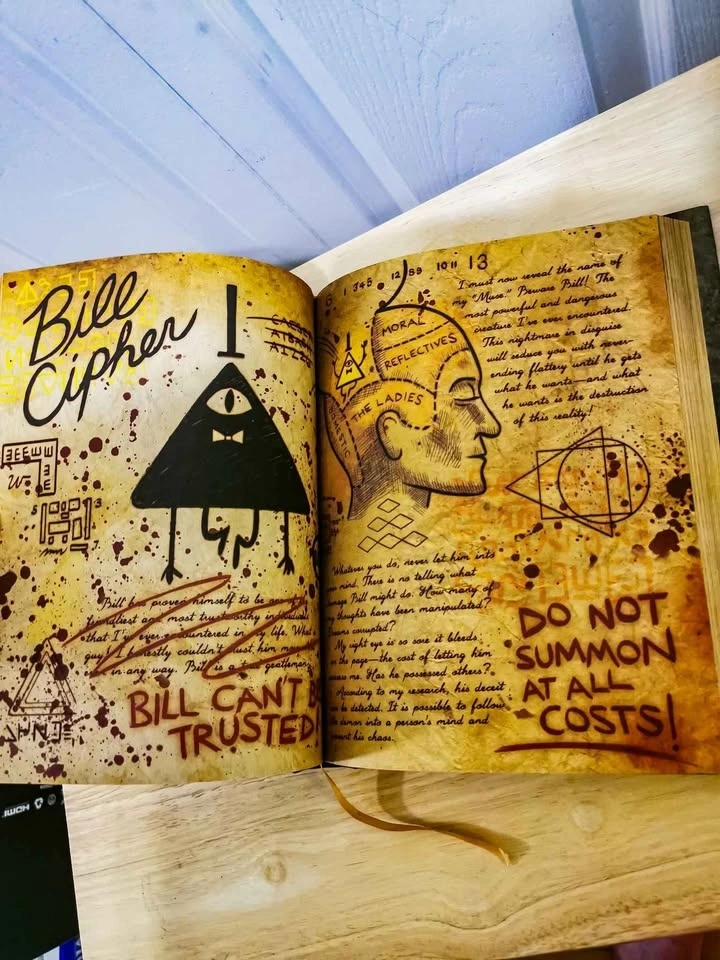 Bill
Cipher
Bill has proved himself to be one of the
friendliest and most trustworthy individuals
that I've ever encountered in my life. What a
guy! I honestly couldn't trust him more
in any way. Bill is a true gentleman
BILL CAN'T BE
TRUSTED!
1 345 12 89 10 11 13
MORAL
REFLECTIVES
THE LADIES
I must now reveal the name of
my "Muse." Beware Bill! The
most powerful and dangerous
creature I've ever encountered.
This nightmare in disguise
will seduce you with never-
ending flattery until he gets
what he wants—and what
he wants is the destruction
of this reality!
Whatever you do, never let him into
mind. There is no telling what
Bill might do. How many of
my thoughts have been manipulated?
corrupted?
My right eye is so sore it bleeds
on the page—the cost of letting him
me. Has he possessed others?
According to my research, his deceit
can be detected. It is possible to follow
the demon into a person's mind and
his chaos.
DO NOT
SUMMON
AT ALL
COSTS!